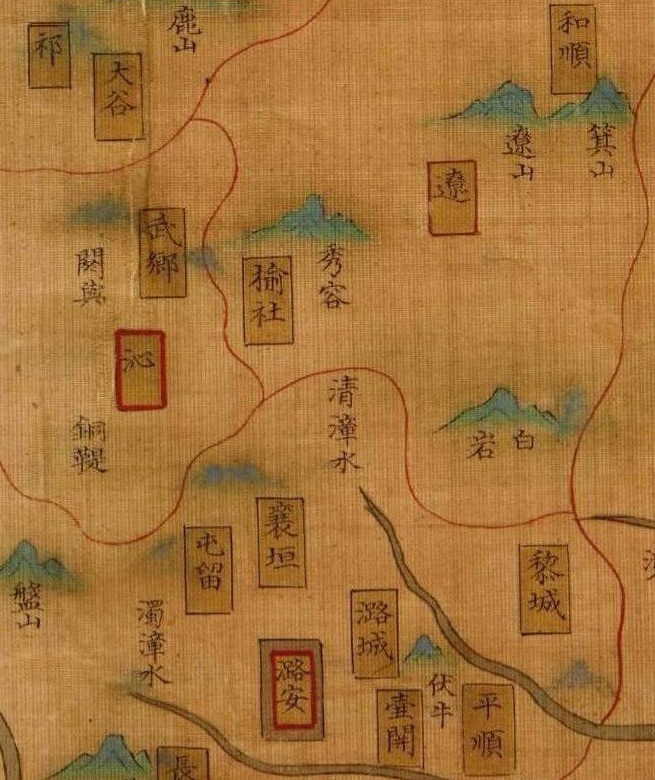 鹿山
祁
大谷
和順
遼山
箕山
遼
武鄉
閼與
榆社
秀容
沁
清漳水
銅鞮
白岩
襄垣
屯留
黎城
盤山
濁漳水
潞城
潞安
伏牛
壺関
平順
長